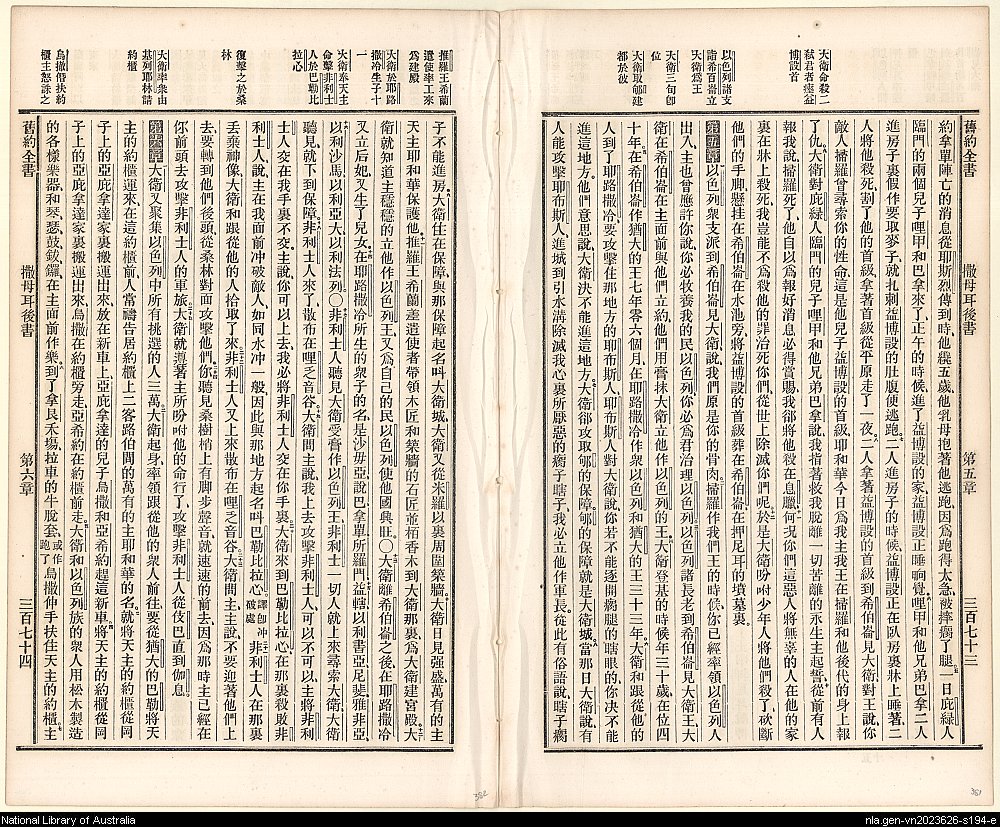 舊約全書 撒母耳後書 第五章 三百七十三
大衛命殺二
弑君者瘞益
博設首
以色列諸支
詣希百崙立
大衛爲王
大衛三旬卽
位
大衛取郇建
都於彼
約拿單陣亡的消息從耶斯烈傳到時他纔五歲他乳母抱著他逃跑因爲跑得太急被摔瘸了腿一日庇綠人
臨門的兩個兒子哩甲和巴拿來了正午的時候進了益博設的家益博設正睡晌覺哩甲和他兄弟巴拿二人
進房子裏裏假作要取麥子就扎刺益博設的肚腹便逃跑二人進房子的時候益博設正在臥房裏牀上睡著二
人將他殺死割了他的首級拿著首級從平原走了一夜二人拿著益博設的首級到希伯崙見大衛對王說你
敵人掃羅曾尋索你的性命這是他兒子益博設的首級耶和華今日爲我主我王在掃羅和他後代的身上報
了仇大衛對庇綠人臨門的兒子哩甲和他兄弟巴拿說我指著救我脫離一切苦難的永生主起誓從前有人
報我說掃羅死了他自以爲報好消息必得賞賜我卻將他殺在息臘何况你們這惡人將無辜的人在他的家
裏在牀上殺死我豈能不爲殺他的罪治死你們從世上除滅你們呢於是大衛吩咐少年人將他們殺了砍斷
他們的手脚懸挂在希伯崙在水池旁將益博設的首級葬在希伯崙在押尼耳的墳墓裏
第五章以色列衆支派到希伯崙見大衛說我們原是你的骨肉掃羅作我們王的時候你已經率領以色列人
出入主也曾應許你說你必牧養我的民以色列你必爲君治理以色列以色列諸長老到希伯崙見大衛王大
衛在希伯崙在主面前與他們立約他們用膏抹大衛立他作以色列的王大衛登基的時候年三十歲在位四
十年在希伯崙作猶大的王七年零六個月在耶路撒冷作衆以色列和猶大的王三十三年大衛和跟從他的
人到了耶路撒冷要攻擊住那地方的耶布斯人耶布斯人對大衛說你若不能趕開瘸腿的瞎眼的你決不能
進這地方他們意思說大衛決不能進這地方大衛卻攻取郇的保障郇的保障就是大衛城當那日大衛說有
人能攻擊耶布斯人進城到引水溝除滅我心裏所厭惡的瘸子瞎子我必立他作軍長從此有俗語說瞎子瘸
381
推羅王希蘭
遣使率工來
爲建殿
大衛於耶路
撒冷生子十
一
大衛奉天主
命擊非利士
人於巴勒比
拉心
復擊之於桑
林
大衛率衆由
基列耶林請
約櫃
烏撒僭扶約
櫃主怒誅之
子不能進房大衛住在保障與那保障起名呌大衛城大衛又從米羅以裏周圍築牆大衛日見强盛萬有的主
天主耶和華保護他推羅王希蘭差遣使者帶領木匠和築牆的石匠並栢香木到大衛那裏爲大衛建宮殿大
衛就知道主穩穩的立他作以色列王又爲自己的民以色列使他國興旺〇大衛離希伯崙之後在耶路撒冷
又立后妃又生了兒女在耶路撒冷所生的衆子的名是沙毋亞說巴拿單所羅門益轄以利書亞尼斐雅非亞
以利沙馬以利亞大以利法列〇非利士人聽見大衛受膏作以色列王非利士一切人就上來尋索大衛大衛
聽見就下到保障非利士人來了散布在哩乏音谷大衛問主說我上去攻擊非利士人可以不可以主將非利
士人交在我手裏不交主說你可以上去我必將非利士人交在你手裏大衛來到巴勒比拉心在那裏殺敗非
利士人說主在我面前冲破敵人如同水冲一般因此與那地方起名呌巴勒比拉心譯卽冲破處非利士人在那裏
丢棄神像大衛和跟從他的人拾取了來非利士人又上來散布在哩乏音谷大衛問主主說不要迎著他們上
去要轉到他們後頭從桑林對面攻擊他們你聽見桑樹梢上有脚步聲音就速速的前去因爲那時主已經在
你前頭去攻擊非利士人的軍旅大衛就遵著主所吩咐他的命行了攻擊非利士人從伎巴直到伽息
第六章大衛又聚集以色列中所有挑選的人三萬大衛起身率領跟從他的衆人前往要從猶大的巴勒將天
主的約櫃運來在這約櫃前人常禱告居約櫃上二𠼻路伯間的萬有的主耶和華的名就將天主的約櫃從岡
子上的亞庇拿達家裏搬運出來放在新車上亞庇拿達的兒子烏撒和亞希約趕這新車將天主的約櫃從岡
子上的亞庇拿達家裏搬運出來烏撒在約櫃旁走亞希約在約櫃前走大衛和以色列族的衆人用松木製造
的各樣樂器和琴瑟鼓鈸鑼在主面前作樂到了拿艮禾場拉車的牛脫套或作跑了烏撒伸手扶住天主的約櫃主
舊約全書 撒母耳後書 第六章 三百七十四
382
National Library of Australia
nla.gen-vn2023626-s194-e